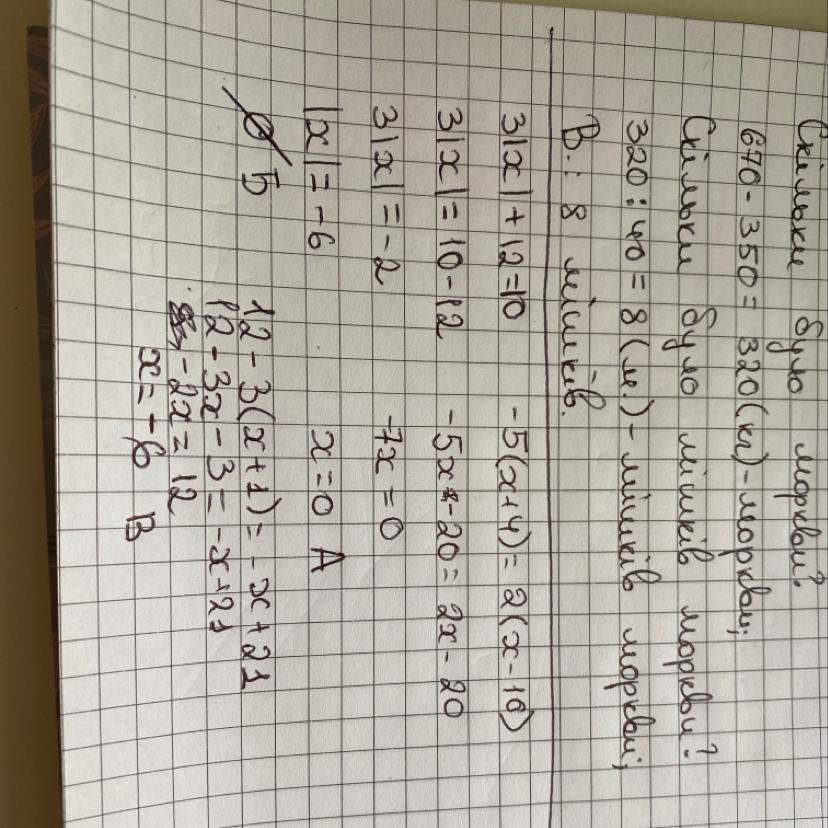 Скільки було моркви?
670 - 350 = 320 (кг) - моркви;
Скільки було мішків моркви?
320 : 40 = 8 (м.) - мішків моркви;
В.: 8 мішків.
3|x| + 12 = 10
3|x| = 10 - 12
3|x| = -2
|x| = -6
Б
-5(x + 4) = 2(x - 10)
-5x - 20 = 2x - 20
-7x = 0
x = 0 А
12 - 3(x + 1) = -x + 21
12 - 3x - 3 = -x + 21
-2x = 12
x = -6 В